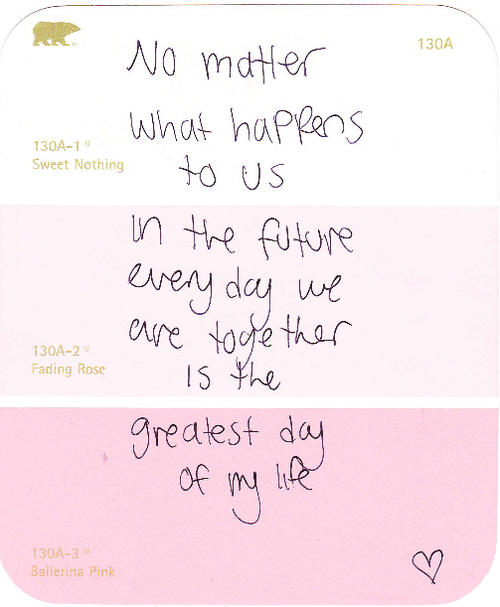 130A
No matter
what happens
130A-1 U
Sweet Nothing
to us
in the future
every day we
are together
130A-2 U
Fading Rose
is the
greatest day
of my life
130A-3 U
Ballerina Pink